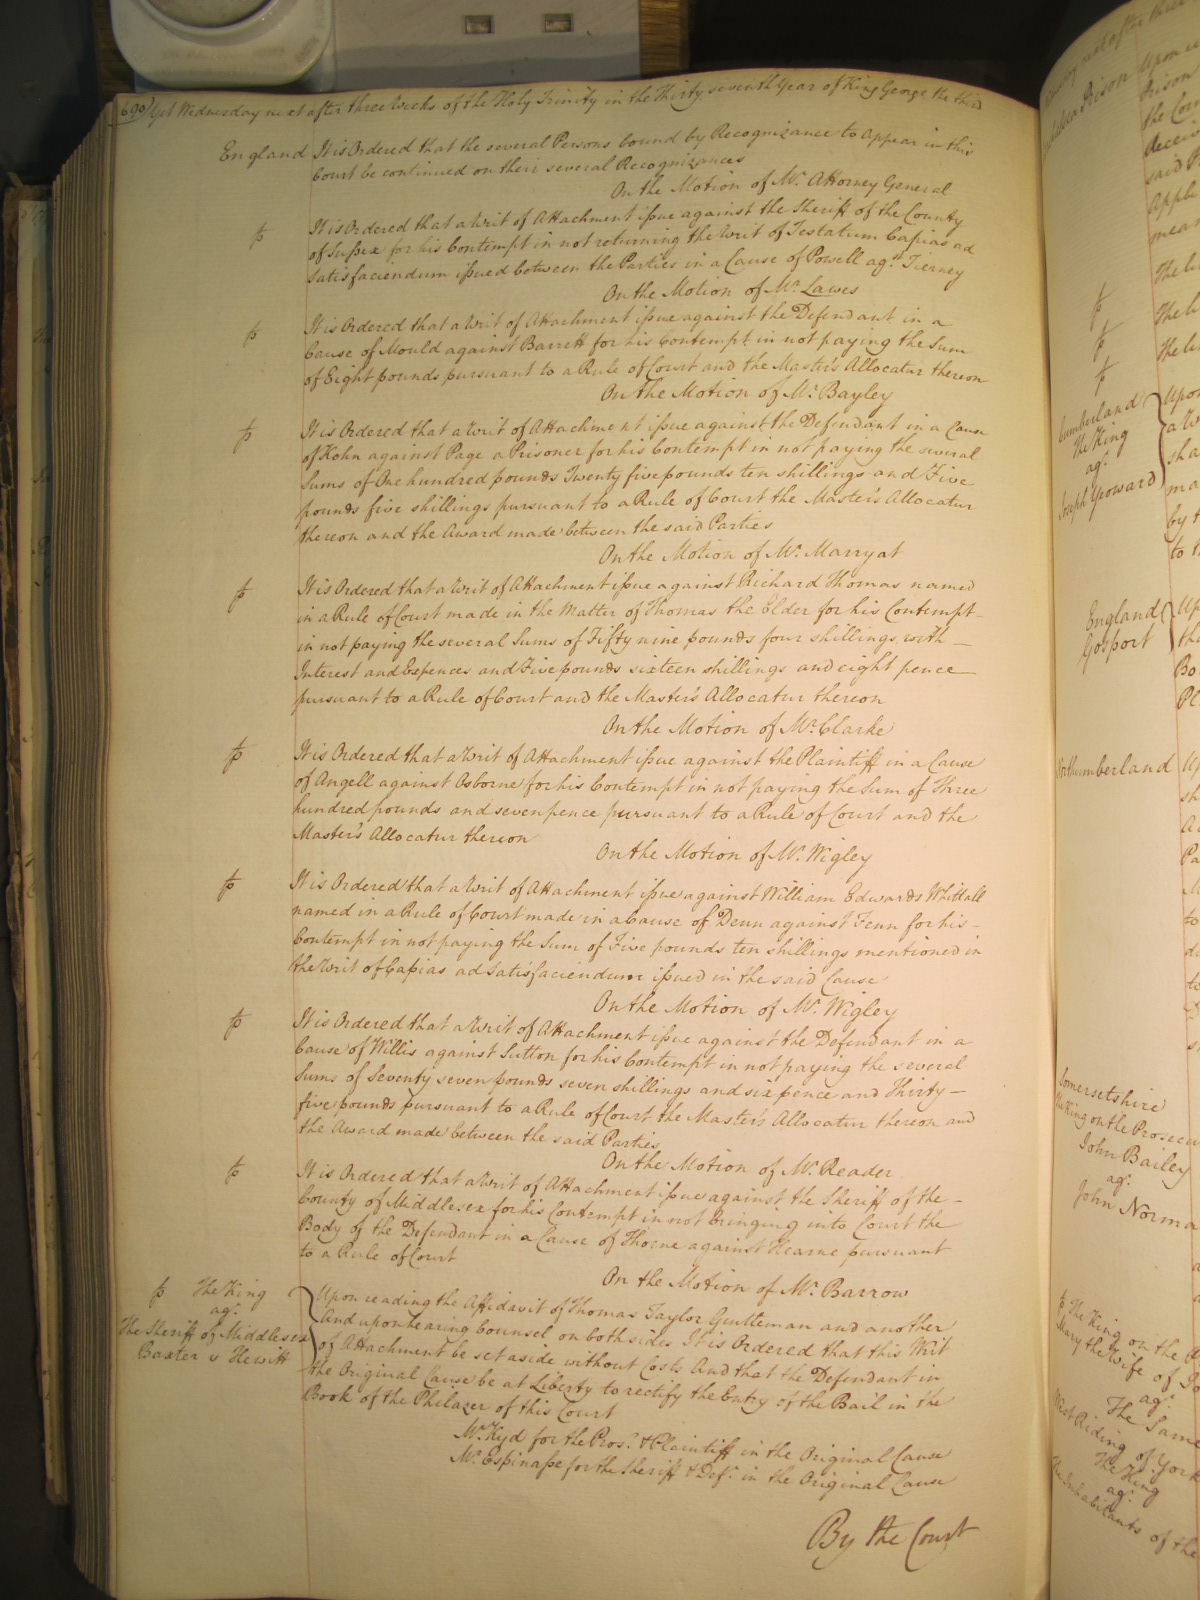 690) Yet Wednesday next after three Weeks of the Holy Trinity in the Thirty seventh Year of King George the third
England It is Ordered that the several Persons bound by Recognizance to appear in this
Court be continued on their several Recognizances
On the Motion of Mr. Attorney General
It is Ordered that a Writ of Attachment issue against the Sheriff of the County
of Sussex for his Contempt in not returning the Writ of Testatum Capias ad
Satisfaciendum issued between the Parties in a Cause of Powell agt. Tierney
On the Motion of Mr. Lawes
It is Ordered that a Writ of Attachment issue against the Defendant in a
Cause of Mould against Barrett for his Contempt in not paying the Sum
of Eight pounds pursuant to a Rule of Court and the Master's Allocatur thereon
On the Motion of Mr. Bayley
It is Ordered that a Writ of Attachment issue against the Defendant in a Cause
of Kohn against Page a Prisoner for his Contempt in not paying the several
Sums of One hundred pounds Twenty five pounds ten shillings and Five
pounds five shillings pursuant to a Rule of Court the Master's Allocatur
thereon and the Award made between the said Parties
On the Motion of Mr. Marryat
It is Ordered that a Writ of Attachment issue against Richard Thomas named
in a Rule of Court made in the Matter of Thomas the Elder for his Contempt
in not paying the several Sums of Fifty nine pounds four shillings with
Interest and Expences and Five pounds sixteen shillings and eight pence
pursuant to a Rule of Court and the Master's Allocatur thereon
On the Motion of Mr. Clarke
It is Ordered that a Writ of Attachment issue against the Plaintiff in a Cause
of Angell against Osborne for his Contempt in not paying the Sum of Three
hundred pounds and seven pence pursuant to a Rule of Court and the
Master's Allocatur thereon
On the Motion of Mr. Wigley
It is Ordered that a Writ of Attachment issue against William Edwards Whittall
named in a Rule of Court made in a Cause of Denn against Fenn for his
Contempt in not paying the Sum of Five pounds ten shillings mentioned in
the Writ of Capias ad Satisfaciendum issued in the said Cause
On the Motion of Mr. Wigley
It is Ordered that a Writ of Attachment issue against the Defendant in a
Cause of Willis against Sutton for his Contempt in not paying the several
Sums of Seventy seven pounds seven shillings and six pence and Thirty
five pounds pursuant to a Rule of Court the Master's Allocatur thereon and
the Award made between the said Parties
On the Motion of Mr. Reader
It is Ordered that a Writ of Attachment issue against the Sheriff of the
County of Middlesex for his Contempt in not bringing into Court the
Body of the Defendant in a Cause of Thorne against Hearne pursuant
to a Rule of Court
On the Motion of Mr. Barrow
The King
agt.
The Sheriff of Middlesex
Baxter v Hewitt
Upon reading the Affidavit of Thomas Taylor Gentleman and another
And upon hearing Counsel on both sides It is Ordered that this Writ
of Attachment be set aside without Costs And that the Defendant in
the Original Cause be at Liberty to rectify the Entry of the Bail in the
Book of the Philazer of this Court
Mr. Kyd for the Pros. & Plaintiff in the Original Cause
Mr. Espinasse for the Sheriff & Deft. in the Original Cause
By the Court
Cumberland
The King
agt.
Joseph Yoward
England
Gosport
Northumberland
Somersetshire
The King on the Prosecu
John Bailey
agt.
John Norma
The King on the
Mary the Wife of
agt.
The Same
West Riding of York
The King
agt.
The Inhabitants of the